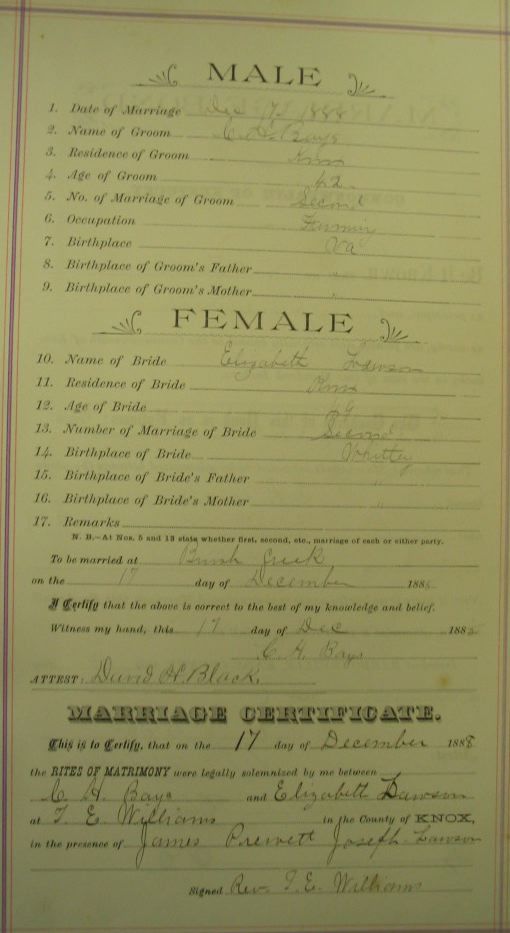 MALE
1. Date of Marriage Dec 17 1888
2. Name of Groom C. H. Bays
3. Residence of Groom Knox
4. Age of Groom 42
5. No. of Marriage of Groom Second
6. Occupation Farming
7. Birthplace Va
8. Birthplace of Groom's Father "
9. Birthplace of Groom's Mother "
FEMALE
10. Name of Bride Elizabeth Lawson
11. Residence of Bride Knox
12. Age of Bride
13. Number of Marriage of Bride Second
14. Birthplace of Bride Whitley
15. Birthplace of Bride's Father "
16. Birthplace of Bride's Mother "
17. Remarks
N. B.—At Nos. 5 and 13 state whether first, second, etc., marriage of each or either party.
To be married at Brush Creek
on the 17 day of December 188
I Certify that the above is correct to the best of my knowledge and belief.
Witness my hand, this 17 day of Dec 188
C. H. Bays
ATTEST: David H. Black.
MARRIAGE CERTIFICATE.
This is to Certify, that on the 17 day of December 1888
the RITES OF MATRIMONY were legally solemnized by me between
C. H. Bays and Elizabeth Lawson
at T. E. Williams in the County of KNOX,
in the presence of James Prewett Joseph Lawson
Signed Rev. T. E. Williams